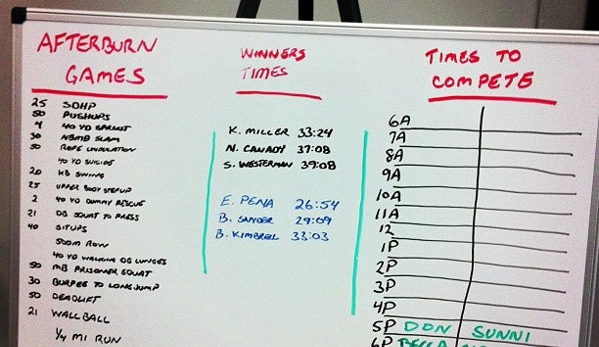 AFTERBURN
GAMES
25 SDHP
50 PUSHUPS
4 40 YD SPRINT
30 NBMB SLAM
50 ROPE UNDULATION
40 YD SUICIDE
20 KB SWING
25 UPPER BODY STEPUP
2 40 YD DUMMY RESCUE
21 DB SQUAT TO PRESS
40 SITUPS
500M ROW
40 YD WALKING DB LUNGES
50 MB PRISONER SQUAT
30 BURPEE TO LONGJUMP
50 DEADLIFT
21 WALLBALL
1/4 MI RUN
WINNERS
TIMES
K. MILLER 33:24
N. CANADY 37:08
S. WESTERMAN 39:08
E. PENA 26:54
B. SNYDER 29:09
B. KIMBRELL 33:03
TIMES TO
COMPETE
6A
7A
8A
9A
10A
11A
12
1P
2P
3P
4P
5P DON SUNNI
6P BECCA